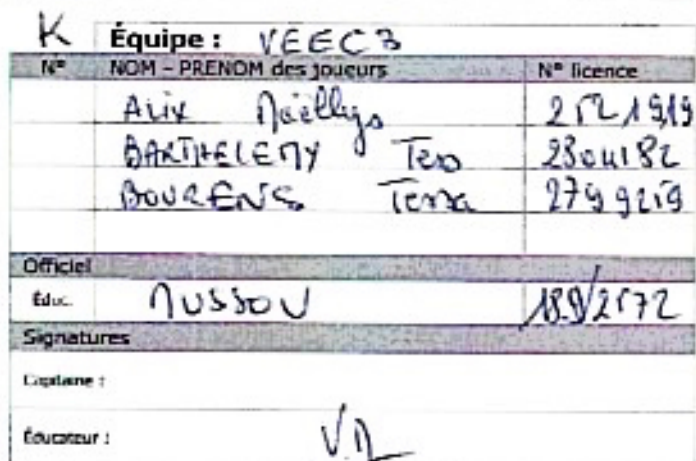 K Équipe : VEEC3
N° NOM - PRENOM des joueurs N° licence
ALIX Maëllys 2521919
BARTHELEMY Teo 2304182
BOURENS Terra 2799219
Officiel
Éduc. MUSSOU 1892572
Signatures
Capitaine :
Éducateur : V.M